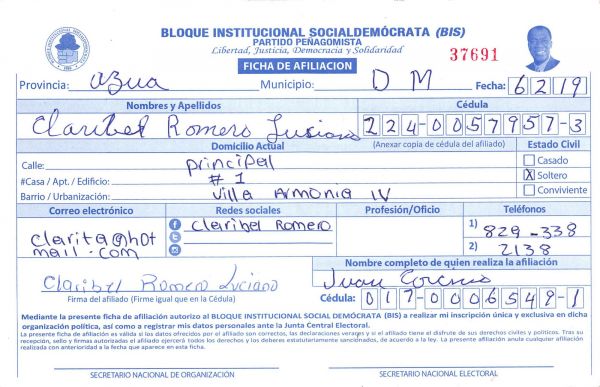 BLOQUE INSTITUCIONAL SOCIALDEMÓCRATA (BIS)
PARTIDO PEÑAGOMISTA
Libertad, Justicia, Democracia y Solidaridad
37691
FICHA DE AFILIACION
Provincia: Azua Municipio: D M Fecha: 6 2 19
Nombres y Apellidos Cédula
Claribel Romero Lusiano 224-0057957-3
Domicilio Actual (Anexar copia de cédula del afiliado) Estado Civil
Calle: Principal Casado
#Casa / Apt. / Edificio: # 1 X Soltero
Barrio / Urbanización: Villa Armonia IV Conviviente
Correo electrónico Redes sociales Profesión/Oficio Teléfonos
Claribel Romero 1) 829-338
clarita@hot 2) 2138
mail.com
Nombre completo de quien realiza la afiliación
Claribel Romero Luciano Juan
Firma del afiliado (Firme igual que en la Cédula) Cédula: 017-0006549-1
Mediante la presente ficha de afiliación autorizo al BLOQUE INSTITUCIONAL SOCIAL DEMÓCRATA (BIS) a realizar mi inscripción única y exclusiva en dicha
organización política, así como a registrar mis datos personales ante la Junta Central Electoral.
La presente ficha de afiliación es válida si los datos ofrecidos por el afiliado son correctos, las declaraciones veraces y si el afiliado tiene el disfrute de sus derechos civiles y políticos. Tras su
recepción, sello y firmas autorizadas el afiliado ejercerá todos los derechos y los deberes estatutariamente sancionados, de acuerdo a la ley. La presente afiliación anula cualquier afiliación
realizada con anterioridad a la fecha que aparece en esta ficha.
SECRETARIO NACIONAL DE ORGANIZACIÓN SECRETARIO NACIONAL ELECTORAL